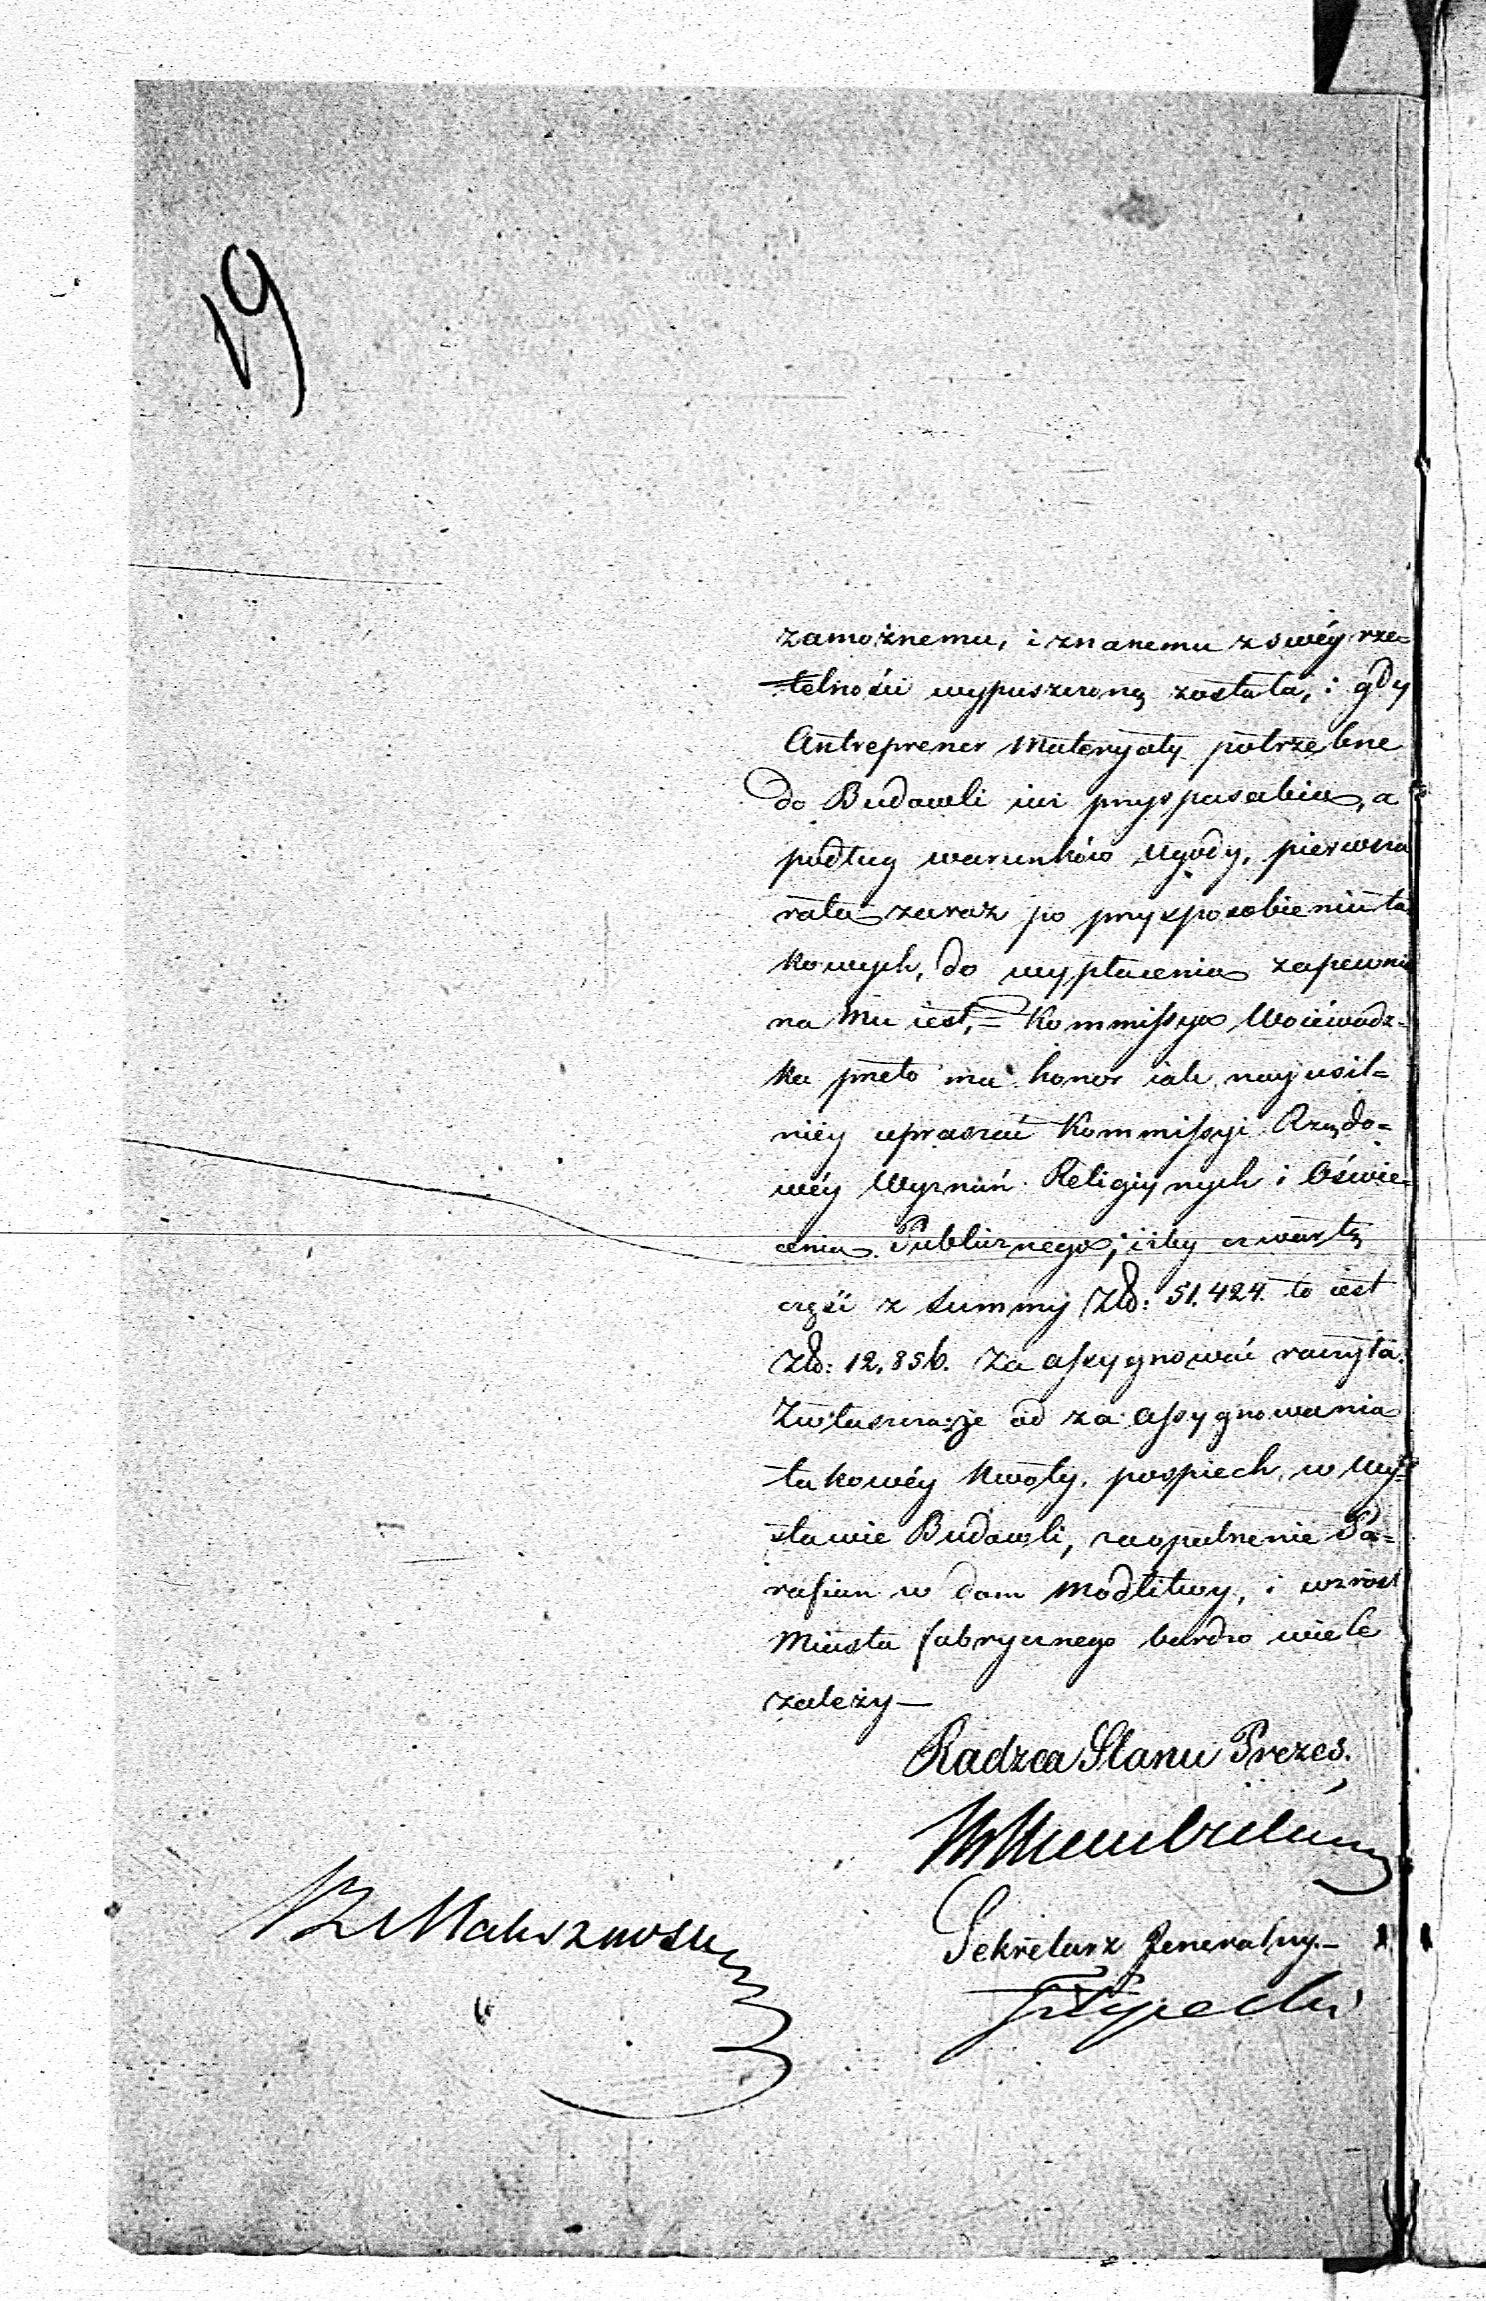 19
zamożnemu, i znanemu z swéy rze-
telności wypuszczoną została, i gdy
Antreprener Materyały potrzebne
do Budowli iuż przysposabia, a
podług warunków Ugody, pierwsza
rata zaraz po przysposobieniu ta
kowych, do wypłacenia zapewnio
na Mu iest, = Kommissya Woiewodz-
ka przeto ma honor iak nayusil=
niéy upraszać Kommissyi Rządo=
wéy Wyznań Religiynych i Oświe-
cenia Publicznego, iżby czwartą
część z Summy Złp: 51,424 to iest
Złp: 12,856. Za assygnować raczyła.
Zwłaszcza że od za assygnowania
takowéy Kwoty, pospiech w Wy-
stawie Budowli, zaopatrzenie Pa=
rafian w dom Modlitwy, i wzrost
Miasta fabrycznego bardzo wiele
zależy —
Radzca Stanu Prezes.
Sekretarz Jeneralny. —
Filipecki